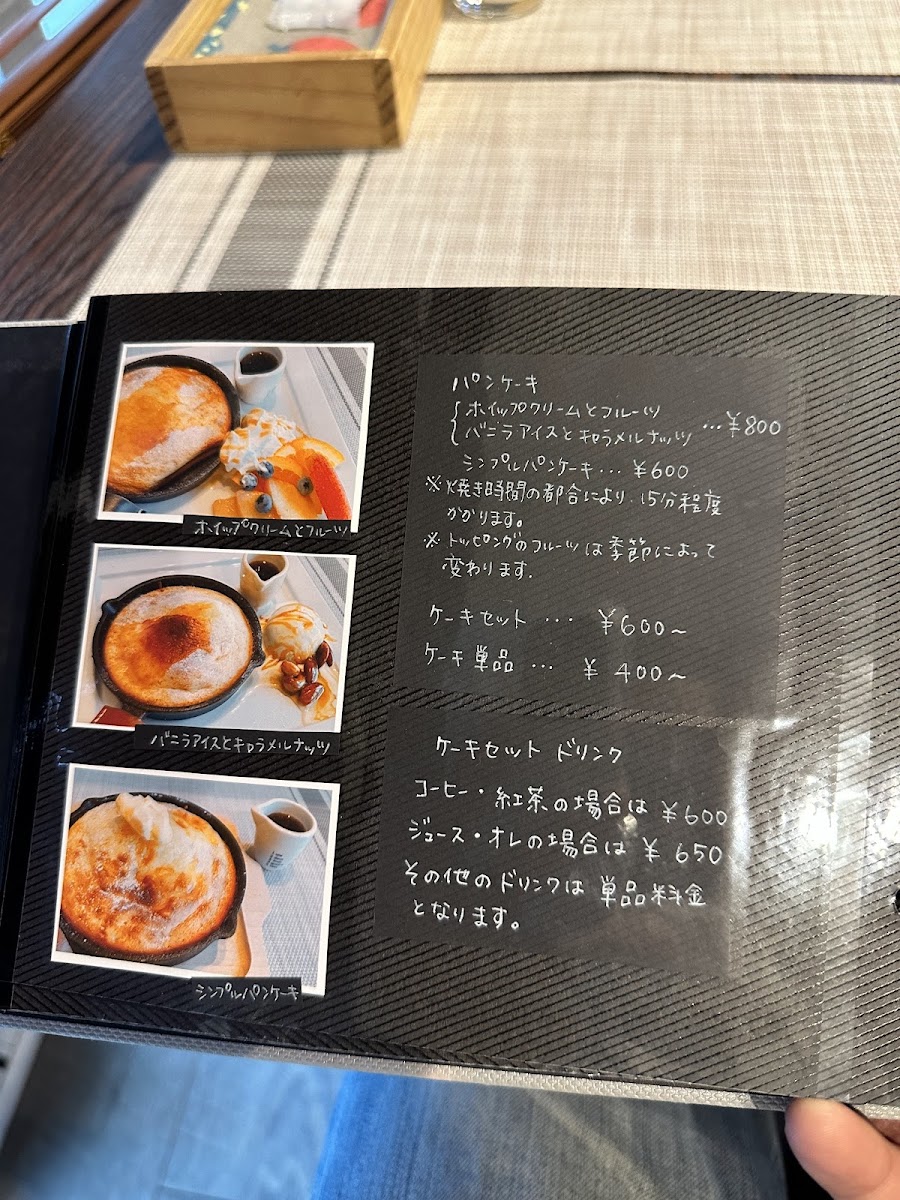 パンケーキ
ホイップクリームとフルーツ
バニラアイスとキャラメルナッツ …¥800
シンプルパンケーキ… ¥600
※焼き時間の都合により、15分程度
かかります。
※トッピングのフルーツは季節によって
変わります.
ケーキセット … ¥600～
ケーキ単品 … ¥400～
ケーキセット ドリンク
コーヒー・紅茶の場合は ¥600
ジュース・オレの場合は ¥650
その他のドリンクは 単品料金
となります。
ホイップクリームとフルーツ
バニラアイスとキャラメルナッツ
シンプルパンケーキ